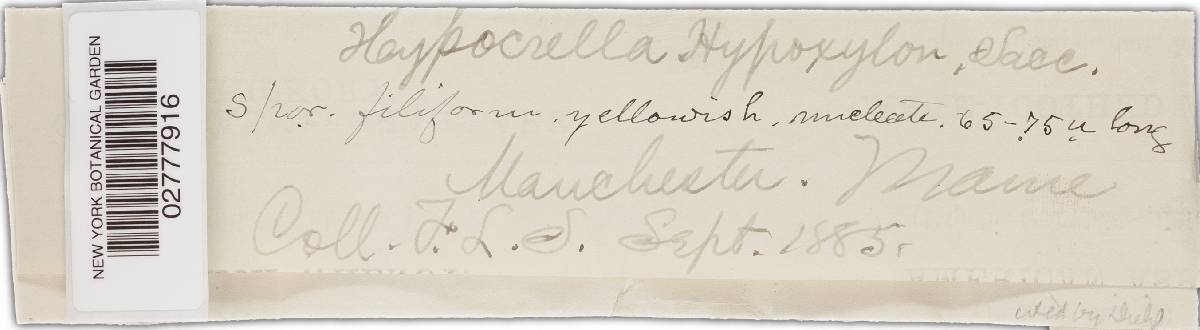 NEW YORK BOTANICAL GARDEN
02777916
Hypocrella Hypoxylon, Sacc.
Spor. filiform, yellowish, nucleate. 65-75 u long
Manchester. Maine
Coll. F. L. S. Sept. 1885.
cited by Diehl